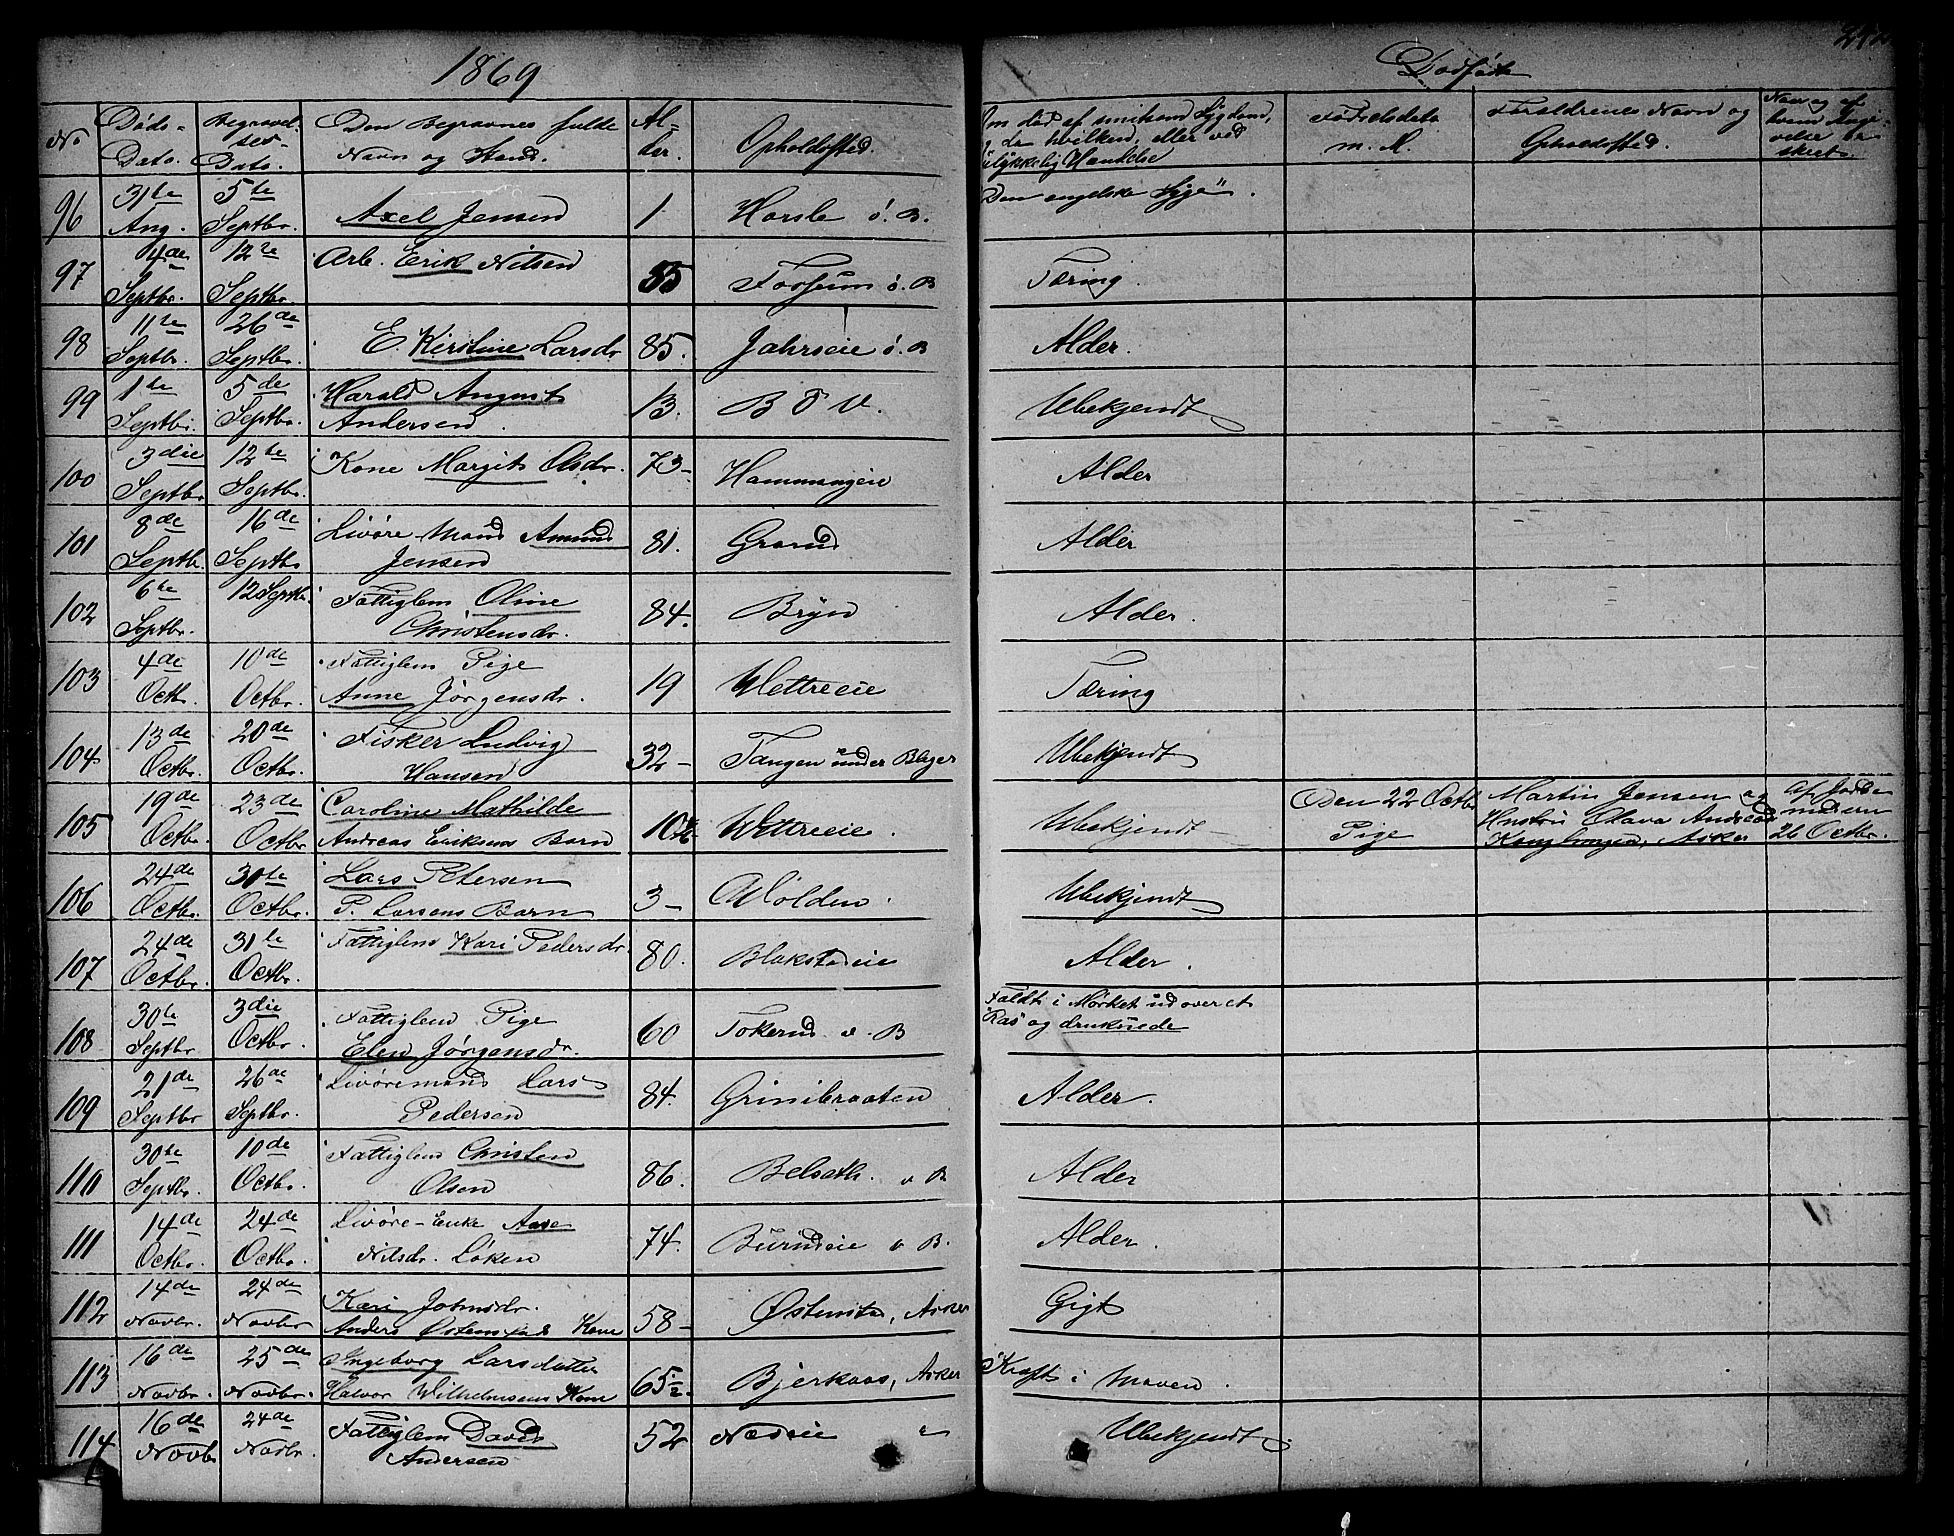 1869
Dødfødte
No
Døds-Dato.
Begravelses-Dato.
Den Begravnes fulde Navn og Stand.
Alder.
Opholdssted.
Om død af smitsom Sygdom, da hvilken, eller ved ulykkelig Hændelse
Fødselsdata m. K.
Forældrenes Navn og Opholdssted.
96 31te Aug. 5te Septbr. Axel Jensen 1 Horsle ö. B. "Den engelske Syge".
97 4de Septbr. 12te Septbr. Arb. Erik Nilsen 85 Fossum ö. B Tæring.
98 11te Septbr. 26de Septbr. E. Kirstine Larsdr 85. Jahrseie ö. B Alder.
99 1te Septbr. 5de Septbr. Harald August Andersen. 13. B ö V. Ubekjendt
100 3die Septbr 12te Septbr. Kone Margit Olsdr. 73- Hammangeie Alder
101 8de Septbr. 16de Septbr Livöre-Mand Amund Jensen 81. Grorud Alder
102 6te Septbr. 12 Septbr. Fattiglem Oline Christensdr. 84. Bryn Alder.
103 4de Octbr. 10de Octbr. Fattiglem Pige Anne Jørgensdr. 19 Wettreeie Tæring
104 13de Octbr. 20de Octbr. Fisker Ludvig Hansen 32- Tangen under Ubekjendt
105 19de Octbr. 23de Octbr Caroline Mathilde Andreas Eriksens Barn Wettreeie. Ubekjendt- Den 22 Octbr Pige Martin Jensen og Hustru Olava Asker 26 Octbr.
106 24de Octbr. 30te Octbr. Lars Petersen P. Larsens Barn 3- Ubekjendt
107 24de Octbr. 31te Octbr. Fattiglem Kari Pedersdr. 80. Blakstadeie Alder.
108 30te Septbr 3die Octbr. Fattiglem Pige Elen Jørgensdr. 60 Tokerud v. B Faldt i Mørket ud over et "Ras" og druknede
109 21de Septbr 26de Septbr. Livöremand Lars Pedersen 84. Grinibraaten Alder.
110 30te Septbr. 10de Octbr. Fattiglem Christen Olsen 86. v B Alder
111 14de Octbr. 24de Octbr. Livöre-Enke Aase Nilsdr. Löken 74. v B. Alder.
112 14de Novbr. 24de Novbr Kari Johnsdr. Anders Østenstads Kone 58- Østensta, Asker Gigt
113 16de Novbr. 25de Novbr. Ingeborg Larsdatter Halvor Wilhelmsens Kone 65½. Bjerkaas, Asker Kræft i Maven.
114 16de Novbr 24de Novbr. Fattiglem David Andersen 52 Næseie " Ubekjendt.